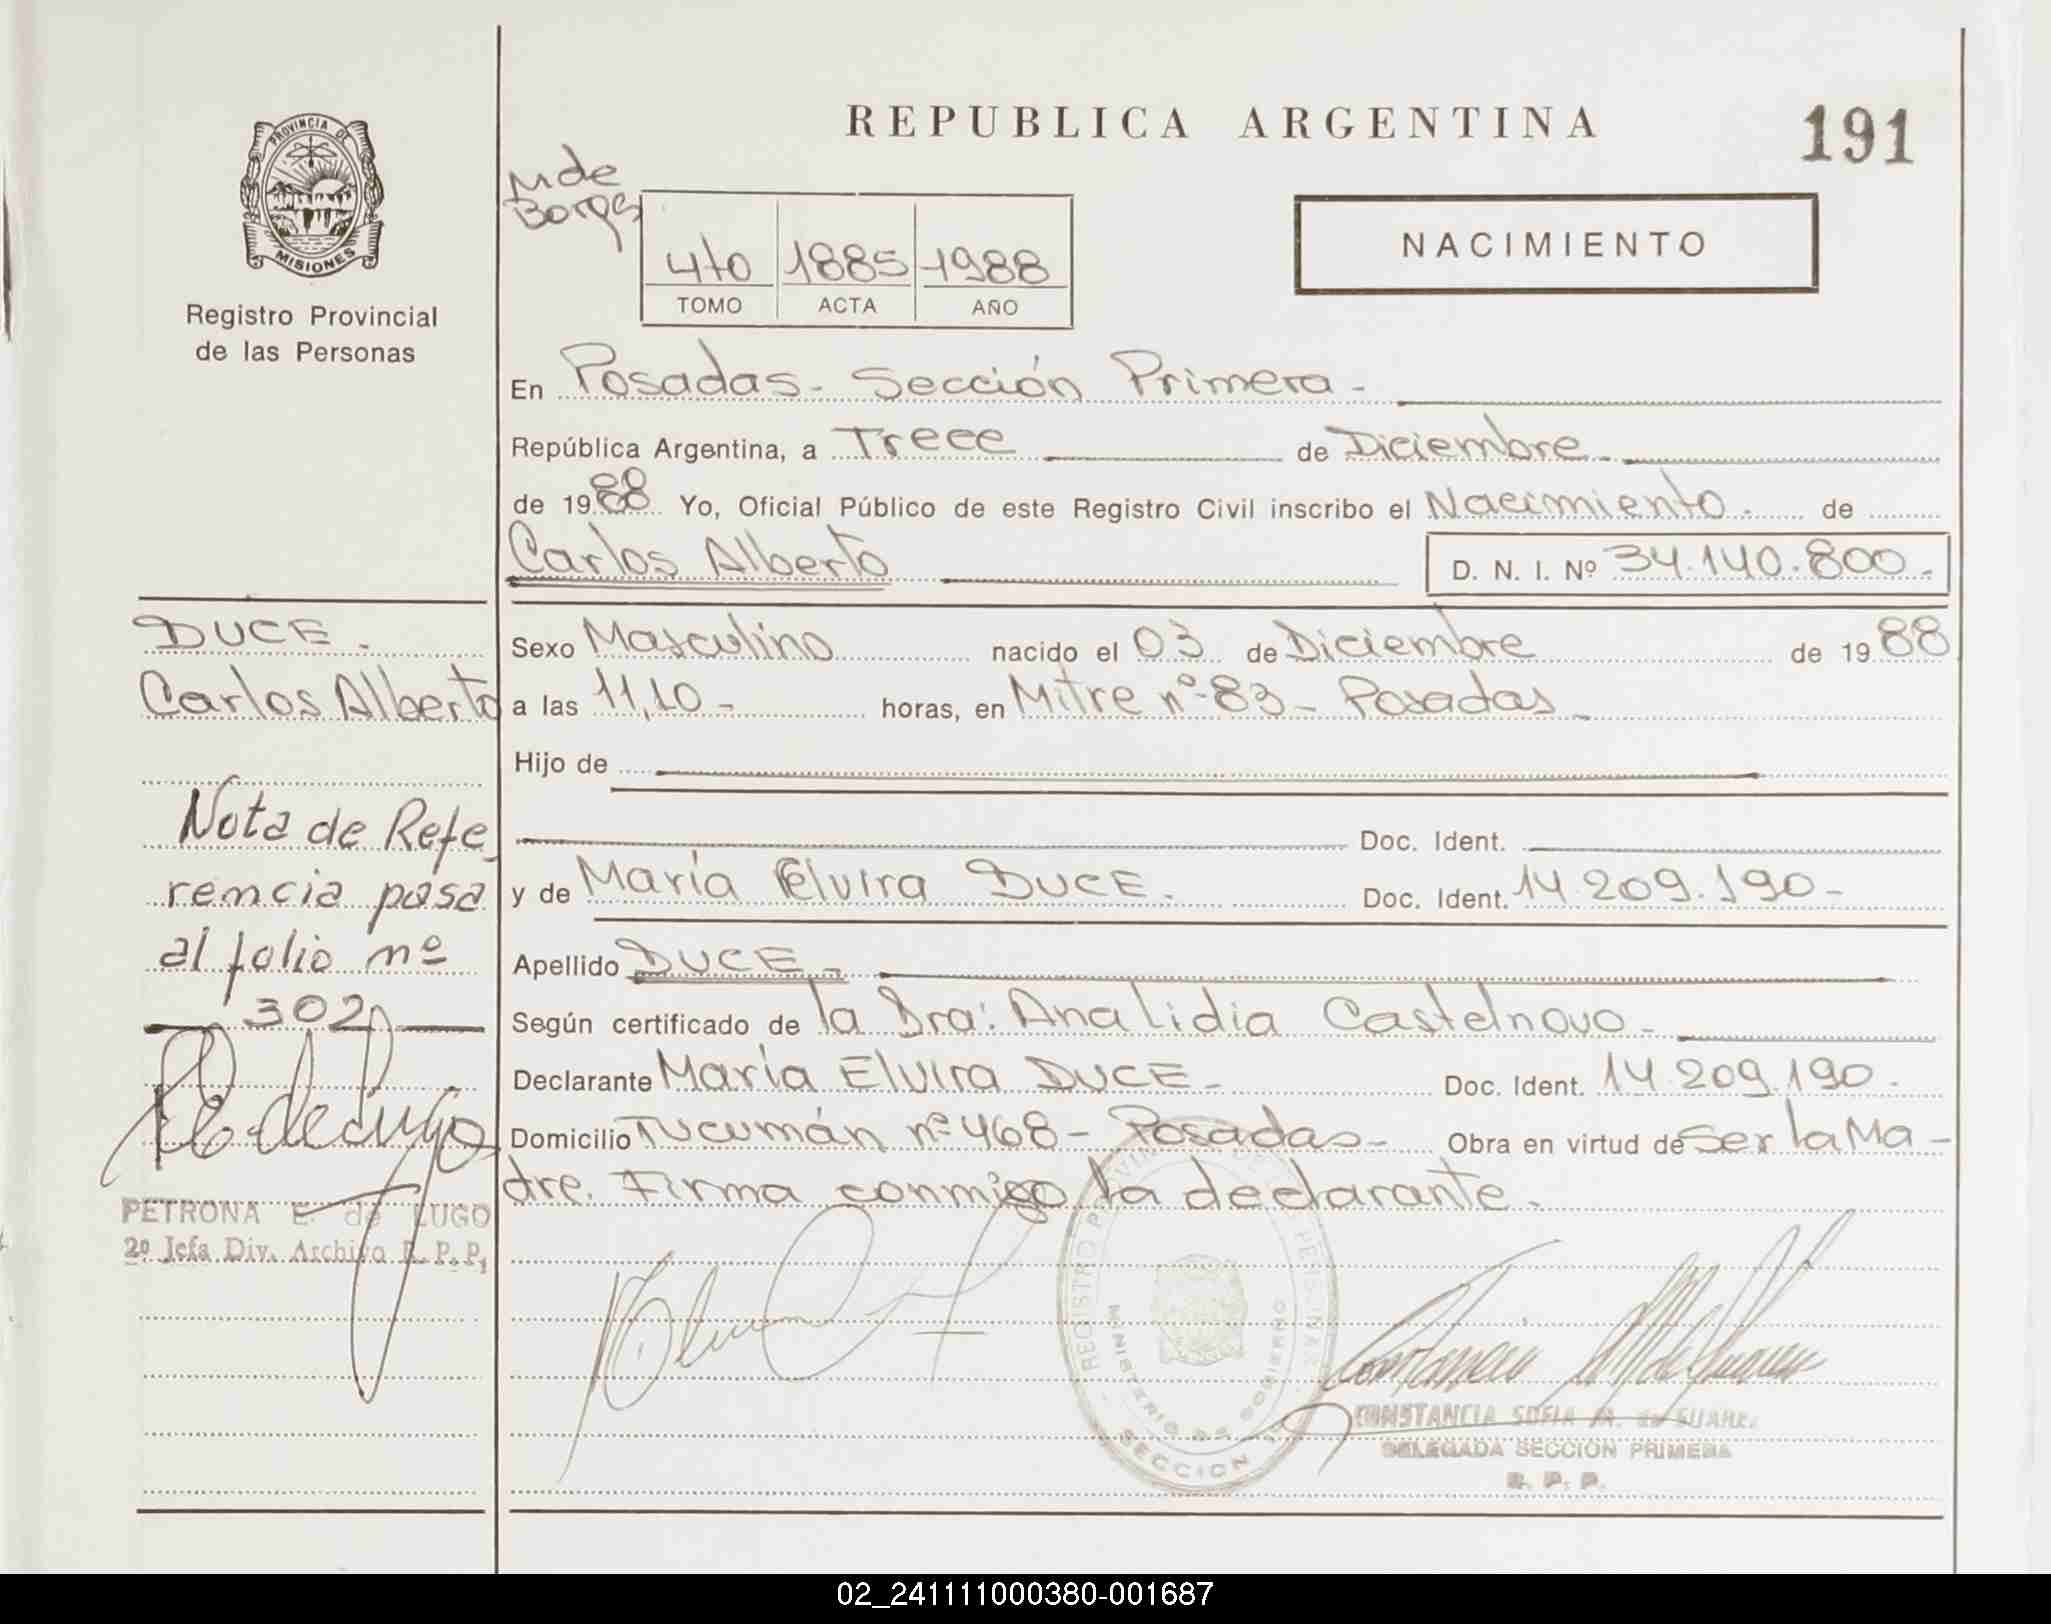 REPUBLICA ARGENTINA
191
PROVINCIA DE
MISIONES
Registro Provincial
de las Personas
M de
4to 1885 1988
TOMO ACTA AÑO
NACIMIENTO
En Posadas - Sección Primera -
República Argentina, a Trece de Diciembre
de 1988 Yo, Oficial Público de este Registro Civil inscribo el Nacimiento. de
Carlos Alberto D. N. I. Nº 34.140.800.-
DUCE.
Carlos Alberto
Nota de Refe
rencia pasa
al folio nº
302
PETRONA E. de LUGO
2º Jefa Div. Archivo R. P. P.
Sexo Masculino nacido el 03 de Diciembre de 1988
a las 11,10 - horas, en Mitre nº 83 - Posadas -
Hijo de
Doc. Ident.
y de María Elvira DUCE. Doc. Ident. 14.209.190 -
Apellido DUCE -
Según certificado de la Dra: Ana Lidia Castelnovo -
Declarante María Elvira DUCE - Doc. Ident. 14.209.190.
Domicilio Tucumán nº 468 - Posadas - Obra en virtud de Ser la Ma -
dre. Firma conmigo la declarante.
REGISTRO PROVINCIAL DE LAS PERSONAS
MINISTERIO DE GOBIERNO
SECCION 1
CONSTANCIA SOFIA M. de SUAREZ
DELEGADA SECCION PRIMERA
R. P. P.
02_241111000380-001687